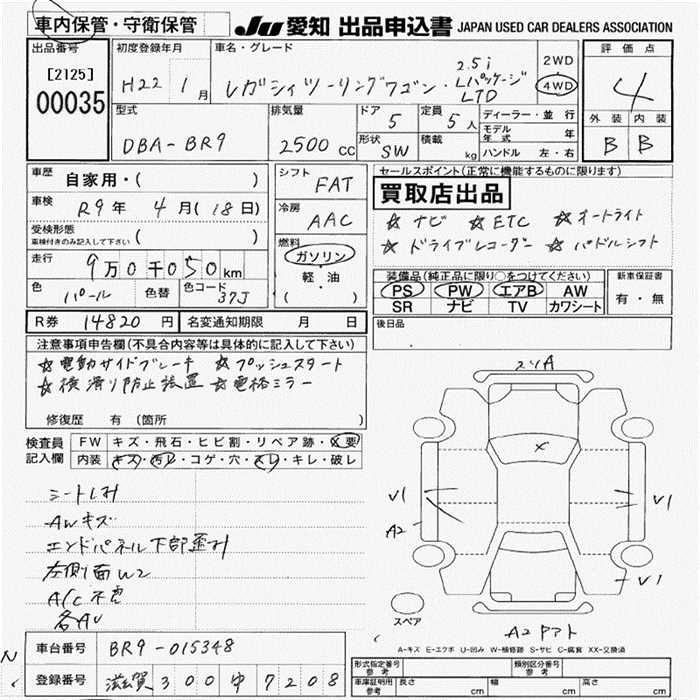 車内保管・守衛保管 JU 愛知 出品申込書 JAPAN USED CAR DEALERS ASSOCIATION
出品番号 初度登録年月 車名・グレード 評価点
[2125] H22 1月 レガシィツーリングワゴン・2.5i Lパッケージ LTD 2WD 4WD 4
00035
型式 排気量 ドア 定員 ディーラー・並行 外装 内装
DBA-BR9 2500cc 5 5人 モデル年式 年 B B
形状 SW 積載 kg ハンドル 左・右
車歴 自家用・( ) シフト FAT セールスポイント(正常に機能するものに限ります)
車検 R9年 4月(18日) 冷房 AAC 買取店出品
受検形態 車検付きのみ記入して下さい ( ) ☆ナビ ☆ETC ☆オートライト
☆ドライブレコーダー ☆パドルシフト
走行 9万0千050km 燃料 ガソリン・軽油 ( )
色 パール 色替 色コード 37J
装備品(純正品に限り○をつけてください) 新車保証書
PS PW エアB AW 有・無
SR ナビ TV カワシート
R券 14820円 名変通知期限 月 日 後日品
注意事項申告欄(不具合内容等は具体的に記入して下さい)
☆電動サイドブレーキ ☆プッシュスタート
☆横滑り防止装置 ☆電格ミラー
修復歴 有(箇所 )
検査員記入欄 FW キズ・飛石・ヒビ割・リペア跡・X要
内装 キズ・汚レ・コゲ・穴・スレ・キレ・破レ
シートしみ
AWキズ
エンドパネル下部歪み
左側面W2
A/C不良
各AU
ソリA
X
V1
A2
V1
V1
スペア
A2 アト
A-キズ E-エクボ U-凹み W-補修跡 S-サビ C-腐食 XX-交換済
車台番号 BR9-015348
登録番号 滋賀300ゆ7208
形式指定番号 参考 類別区分番号 参考
車庫証明用 参考 長さ cm 幅 cm 高さ cm